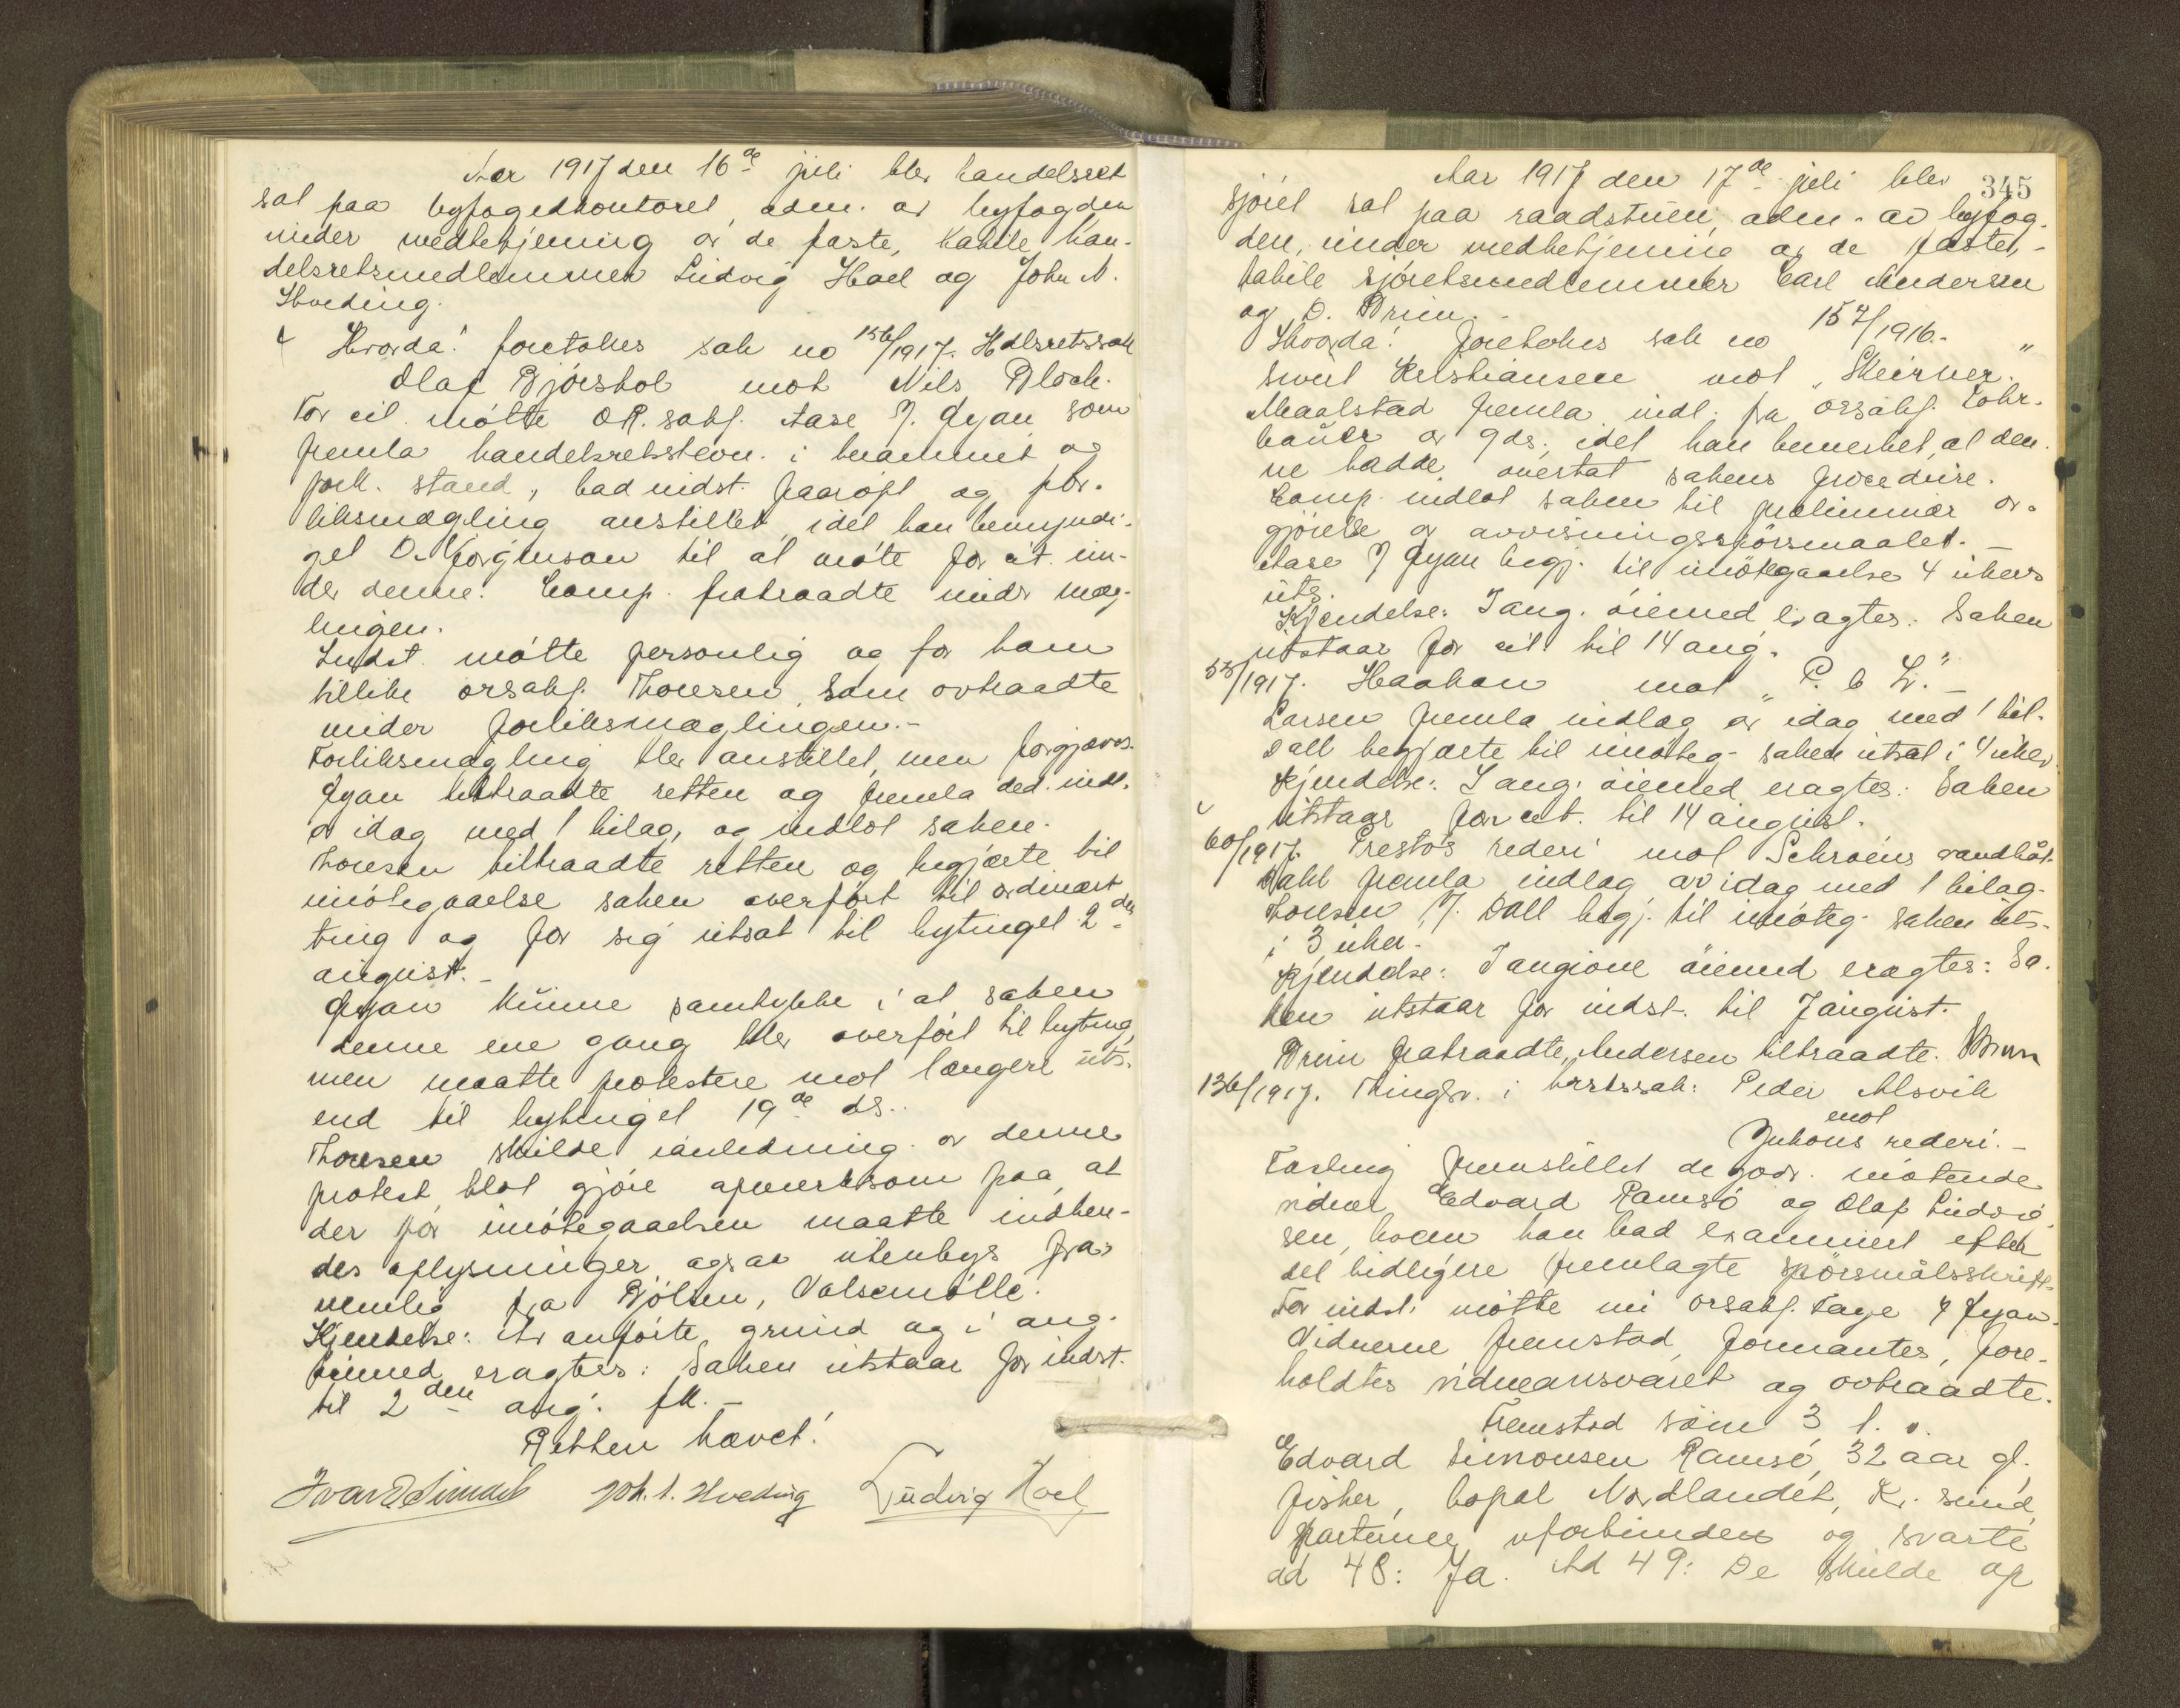 Aar 1917 den 16de juli blev handelsret
sat paa byfogedkontoret, adm. av byfogden
under medbetjening av de faste, habile han-
delsretsmedlemmer Ludvig Hoel og John N.
Hveding.
Hvorda! foretokes sak no 156/1917. Hdlsretssak
Olaf Bjørstol mot Nils Bloch.
For cit. møtte OR. sakf. Aase f. Gyan som
fremla handelsretsstevn. i beammet og
fork. stand, bad indst. paaropt og for-
liksmægling anstillet, idet han bemyndi-
get O. Jørginson til at møte for cit. un-
der denne. Comp. fratraadte under mæg-
lingen.
Indst. møtte personlig og for ham
tillike orsakf. Thoresen, som avtraadte
under forliksmæglingen.-
Forliksmægling blev anstillet, men forgjæves.
Gyan tiltraadte retten og fremla ded. indl.
av idag med 1 bilag, og indlot saken.
Thoresen tiltraadte retten og begjærte til
imøtegaaelse saken overført til ordinært
ting og for sig utsat til bytinget 2den
august.-
Gyan kunne samtykke i at saken
denne ene gang blev overført til byting,
men maatte protestere mot længere uts.
end til bytinget 19de ds..
Thoresen skulde i anledning av denne
protest blot gjøre opmerksom paa, at
der for imøtegaaelsen maatte indhen-
des oplysninger ogsaa utenbys fra
nemlig fra Bjølsen, Valsemølle.
Kjendelse: Av anførte grund og i ang.
øiemed eragtes: Saken utstaar for indst.
til 2den aug. fk.-
Retten hævet!
Joh. N. Hveding Ludvig Hoel
345
Aar 1917 den 17de juli blev
sjøret sat paa raadstuen, adm. av byfog-
den, under medbetjening av de faste,-
habile sjøretsmedlemmer Carl Andersen
og O. Brun.
Hvorda! foretokes sak no 157/1916.-
Sivert Kristiansen mot „Skirner."
Maalstad fremla indl. fra orsakf. Lohr-
bauer av 9ds., idet han bemerket, at den-
ne hadde overtat sakens procedure.
Comp. indlot saken til preliminær av-
gjørelse av avvisningsspørsmaalet.-
Aase f Gyan begj. til imøtegaaelse 4 ukers
uts.
Kjendelse: I ang. øiemed eragtes: Saken
utstaar for cit. til 14 aug.
53/1917. Haakon mot „P. C. L."-
Larsen fremla indlæg av idag med 1 bil.
Dall begjærte til imøteg. saken utsat i 4 uker.
Kjendelse: I ang. øiemed eragtes: Saken
utstaar for cit. til 14 august.
60/1917. Prestøs rederi mot Schrøens vandbåt.
Dahl fremla indlæg av idag med 1 bilag.
Thoresen f. Dall begj. til imøteg. saken uts.
i 3 uker.
Kjendelse: I angivne øiemed eragtes: Sa-
ken utstaar for indst. til 7 august.
Brun fratraadte, Andersen tiltraadte. Brun
136/1917. Tingsv. i brstssak: Peder Alsvik
mot
Jukons rederi.-
Fasting fremstillet de godv. møtende
vidner Edvard Ramsø og Olaf Ludvig-
sen, hvem han bad examinert efter
det tidligere fremlagte spørsmålsskrift.
For indst. møtte nu orsakf. Tage f Gyan.
Vidnerne fremstod, formantes, fore-
holdtes vidneansvaret og avtraadte.
Fremstod som 3 1. v.
Edvard Simonsen Ramsø, 32 aar gl.,
fisker, bopæl Nordlandet, Kr. sund,
parterne uforbunden og svarte
ad 48: Ja. Ad 49: De skulde op